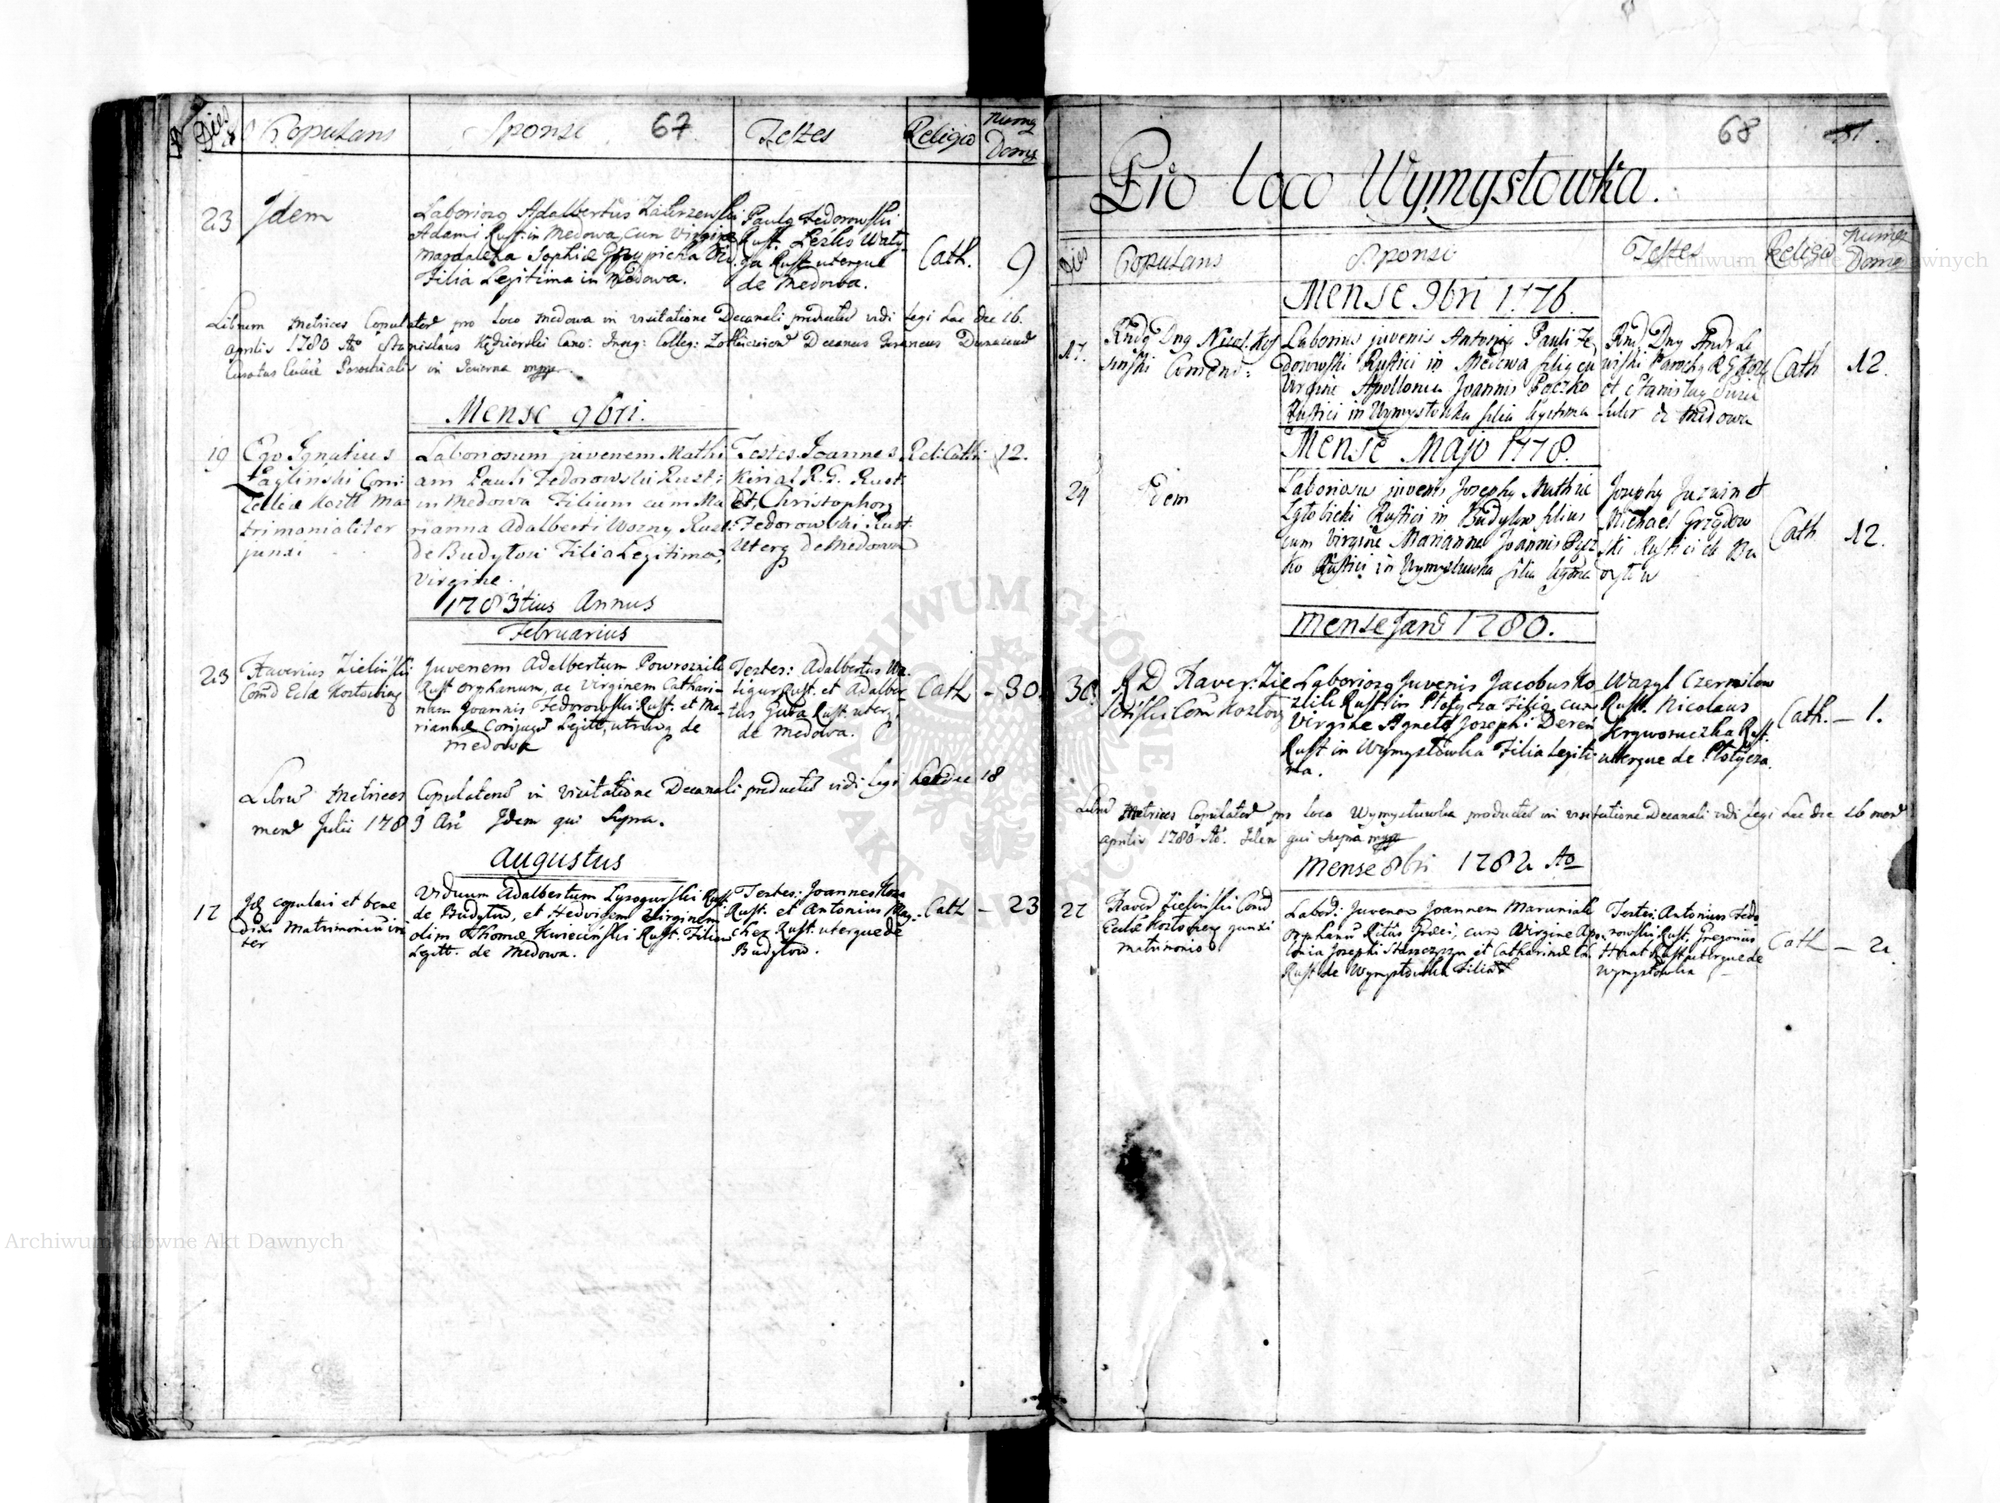 Dies
Copulans
Sponsi
67
Testes
Religio
Numg
Domg
23
Idem
Laboriosg Adalbertus Zakrzewski
Adami Rust: in Medowa, cum Virgine
Magdalena Sophiæ
Filia Legitima in Medowa.
Paulg Fedorowski
Rust. Leśko Waty-
ga Rust. utergue
de Medowa.
Cath.
9
Librum Metrices Copulatorũ pro loco Medowa in visitatione Decanali productũ vidi legi hac die 16.
Aprilis 1780 Aõ Stanislaus Kędzierski Cano: Insig: Colleg: Decanus
Curatus Parochialis in
Mense 9bri.
19
Ego Ignatius
Pagliński Com:
Ecclæ Kozł: Ma
trimonialiter
junxi
Laboriosum juvenem Mathi
am Pauli Fedorowski Rusti
in Medowa Filium cum Ma
rianna Adalberti Wozny Rust:
de Budyłow Filia Legitima,
Virgine.
Testes Joannes
Kiriał R.G. Rust
Et, Christophorg
Fedorowski Rust.
Uterg de Medowa
Rel: Cath:
12.
1783tius Annus
Februarius
23
Xaverius Zieliński
Comd Eclæ Kozłoviens
Juvenem Adalbertum Powroznik
Rust orphanum, ac Virginem Cathari-
nam Joannis Fedorowski Rust. et Ma-
riannæ Conjugũ Legitt, utrumg de
Medowa
Testes: Adalbertus Wa-
ligur Rust. et Adalber-
tus Guba Rust. uterg
de Medowa.
Cath
- 30.
Librũ Metrices Copulatorũ in visitatione Decanali productũ vidi legi hac die 18
mens Julii 1783 Ao Idem qui Supra.
Augustus
17
Id copulavi et bene
dixi Matrimoniũ in
ter
Viduum Adalbertum Lysogurski Rust.
de Budyłow, et Hedvigem Virginem
olim Thomæ Kwieciński Rust. Filiam
Legitt. de Medowa.
Testes: Joannes Koza
Rust. et Antonius Mag-
chez Rust. utergue de
Budyłow.
Cath
- 23
68
81.
Pro loco Wymysłowka.
Dies
Copulans
Sponsi
Testes
Religio
Numeg
Domg
Mense 9bri 1776.
17.
Rndg Dng Nicol. Kos
sinski Comend:
Laborius juvenis Antonig Pauli Fe
dorowski Rustici in Medowa filig cũ
Virgine Apollonia Joannis Paczko
Rustici in Wymysłowka filia legitima
Rnd Dng Andr
wiski Parochg
et Stanislag
de Medowa
Cath
12.
Mense Majo 1778.
24
Idem
Laboriosus juvenis Josephg Mathiæ
Zgłobicki Rustici in Budyłow filius
cum Virgine Marianna Joannis Pacz
ko Rustici in Wymysłowka filia legitima
Josephg Juzwin et
Michael Grzędow
ski Rustici de Bu
dyłow
Cath
12.
Mense Jarõ 1780.
30.
R D Xaver: Zie
liński Com Kozłov
Laboriosg Juvenis Jacobus Ko
zlik Rust in Płotycza Filig, cum
Virgine Agnete Josephi Dereń
Rust in Wymysłowka Filia Legiti
ma.
Wazyl Czerniłow
Rust. Nicolaus
Rust.
utergue de Płotycza.
Cath. - 1.
Librũ Metrices Copulatorũ pro loco Wymysłowka productũ in visitatione Decanali vidi legi hac die 16 mens
Aprilis 1780 Aõ. Idem qui supra
Mense 8bri 1782 Ao
27
Xaver Zieliński Comd
Eclæ Kozłoviens junxi
matrimonio
Labor: Juvenem Joannem Maruniak
orphanũ Ritus Græci, cum Virgine Apo-
lonia Josephi et Catharinæ
Rust. de Wymysłowka Filia
Testes: Antonius Fedo
rowski Rust. Gregorius
Hnat Rust. utergue de
Wymysłowka
Cath - 2.
Archiwum Główne Akt Dawnych
Archiwum Główne Akt Dawnych
ARCHIWUM GŁÓWNE AKT DAWNYCH